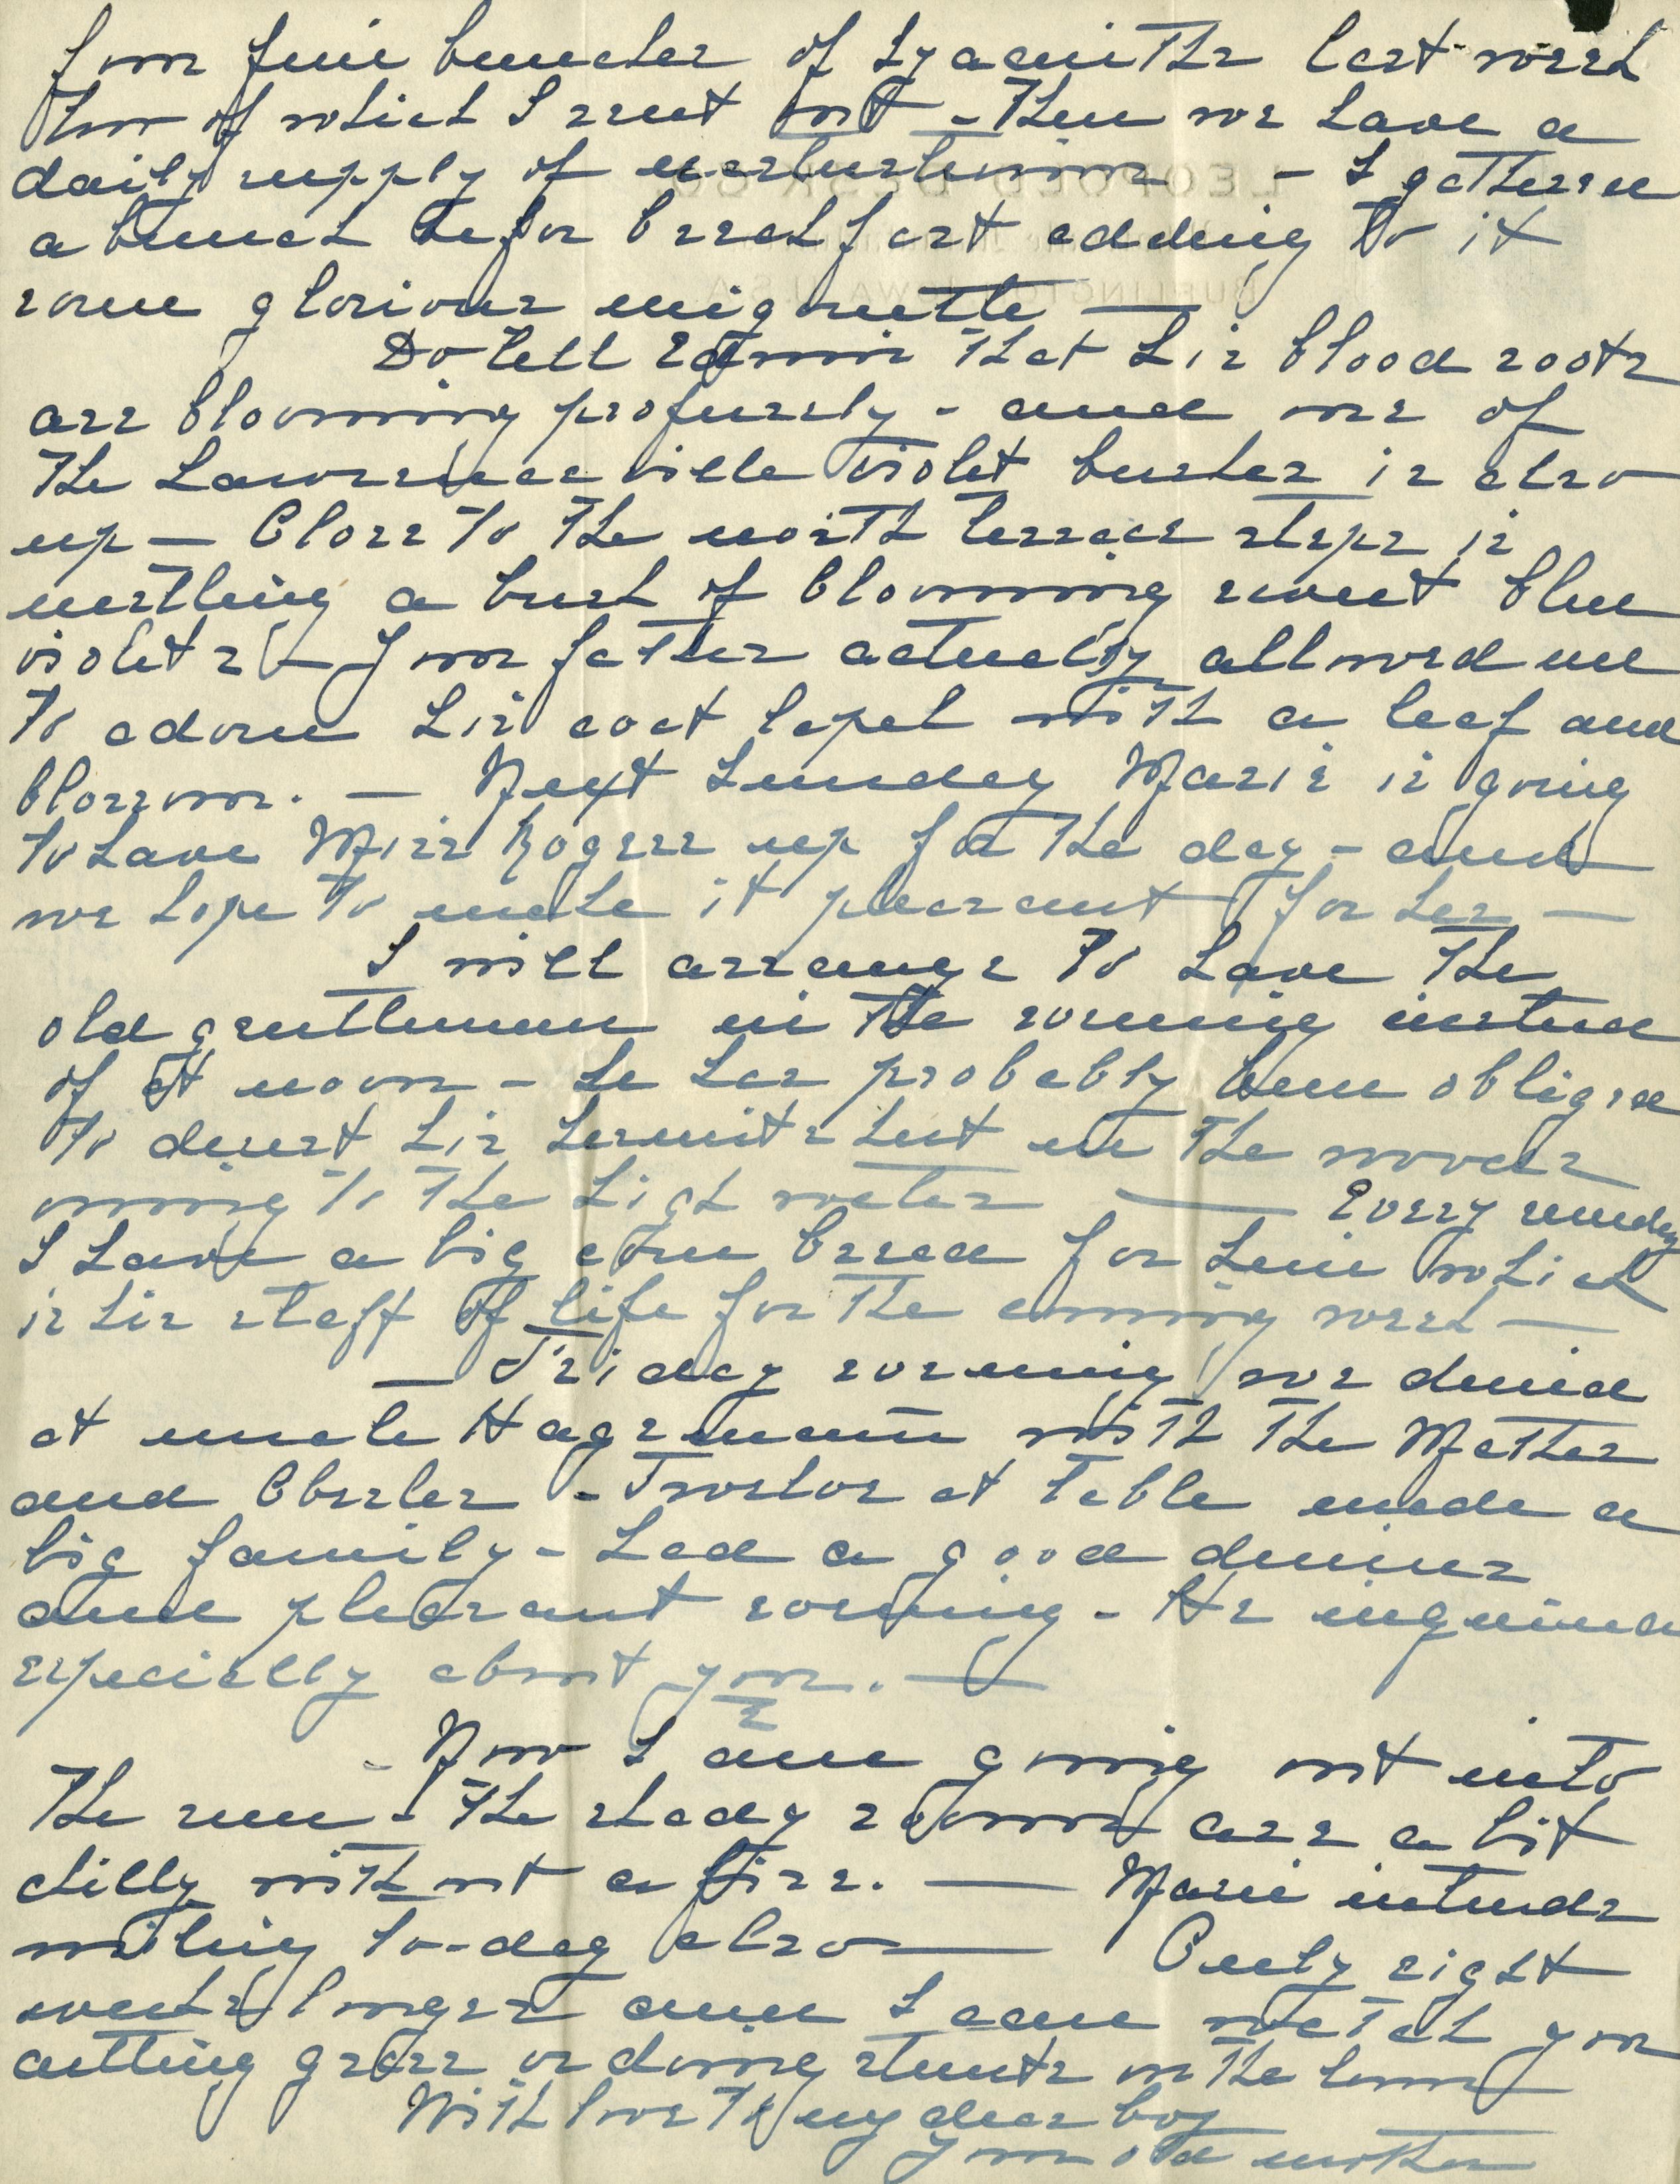 four fine bunches of hyacinths last week
two of which I sent out - Then we have a
daily supply of nasturtiums - I gathered
a bunch before breakfast adding to it
some glorious mignonette —
Do tell Edwin that his blood roots
are blooming profusely - and one of
the Lawrenceville violet bushes is also
up — Close to the north terrace steps is
nestling a bush of blooming sweet blue
violets - Your father actually allowed me
to adorn his coat lapel with a leaf and
blossom. — Next Sunday Marie is going
to have Miss Rogers up for the day - and
we hope to make it pleasant for her —
I will arrange to have the
old gentleman in the evening instead
of at noon - he has probably been obliged
to desert his hermits hut in the woods
owing to the high water — Every sunday
I have a big corn bread for him which
is his staff of life for the coming week —
— Friday evening we dined
at uncle Hagemann with the Mathes
and Oberles - Twelve at table made a
big family - had a good dinner
and pleasant evening - He inquired
especially about you. —
2
- Now I am going out into
the sun - the shady rooms are a bit
chilly without a fire. — Marie intends
writing to-day also — Only eight
weeks longer and I can watch you
cutting grass or doing stunts on the lawn
With love to my dear boy
Your old mother
LEOPOLD DESK CO
BURLINGTON, IOWA, U.S.A.